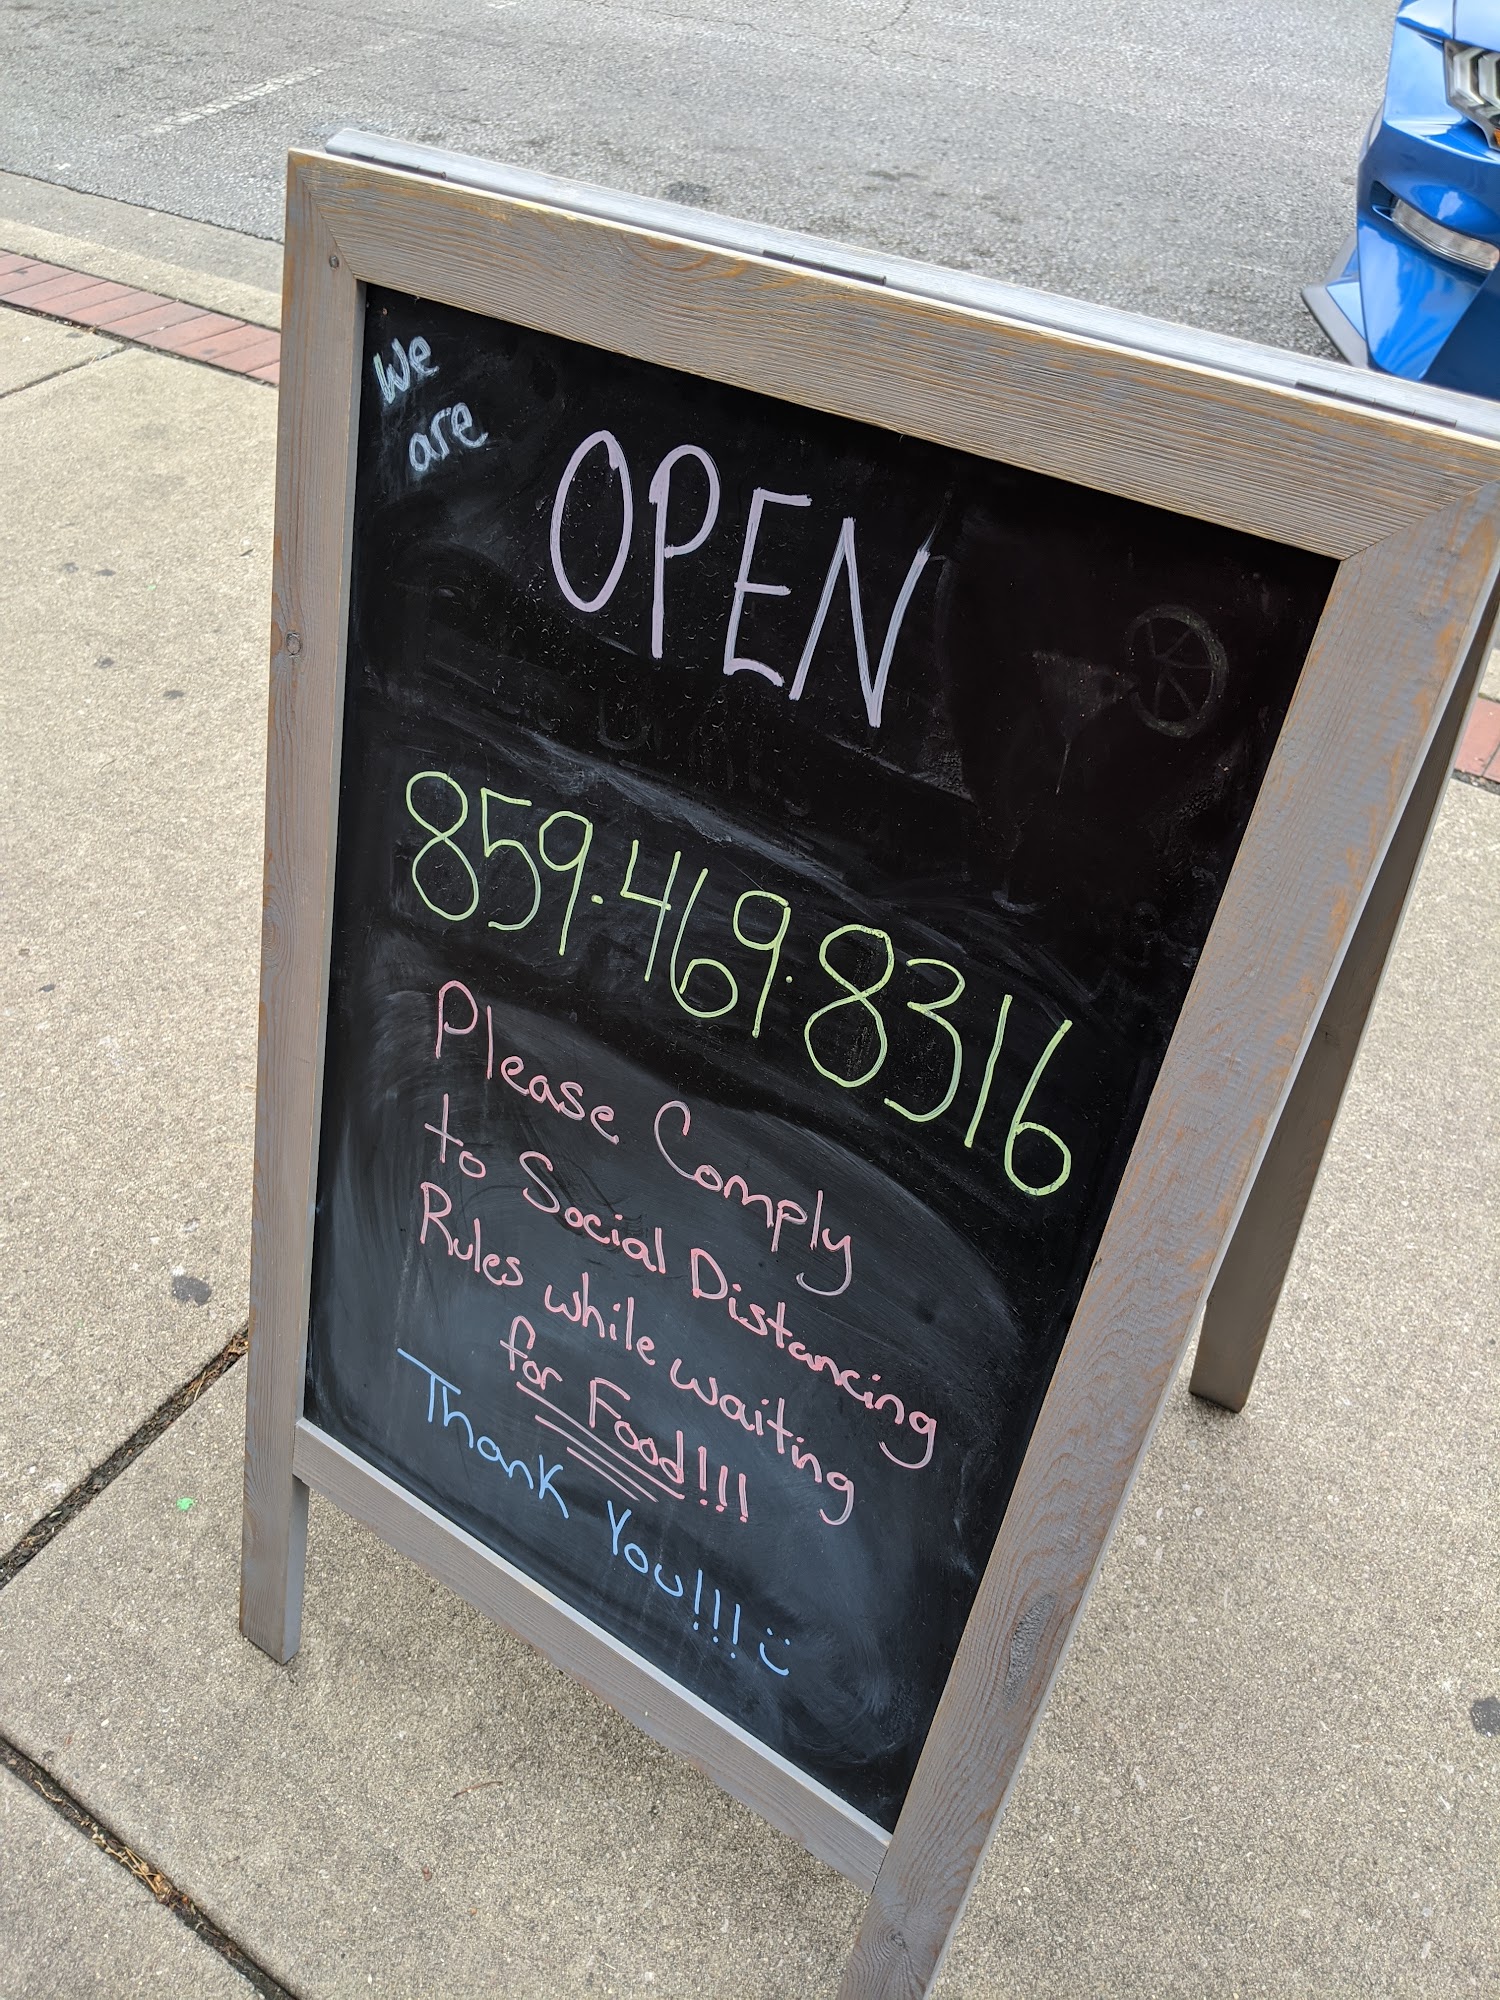 We
are
OPEN
859.469.8316
Please Comply
to Social Distancing
Rules while waiting
for Food!!!
Thank You!!! :)